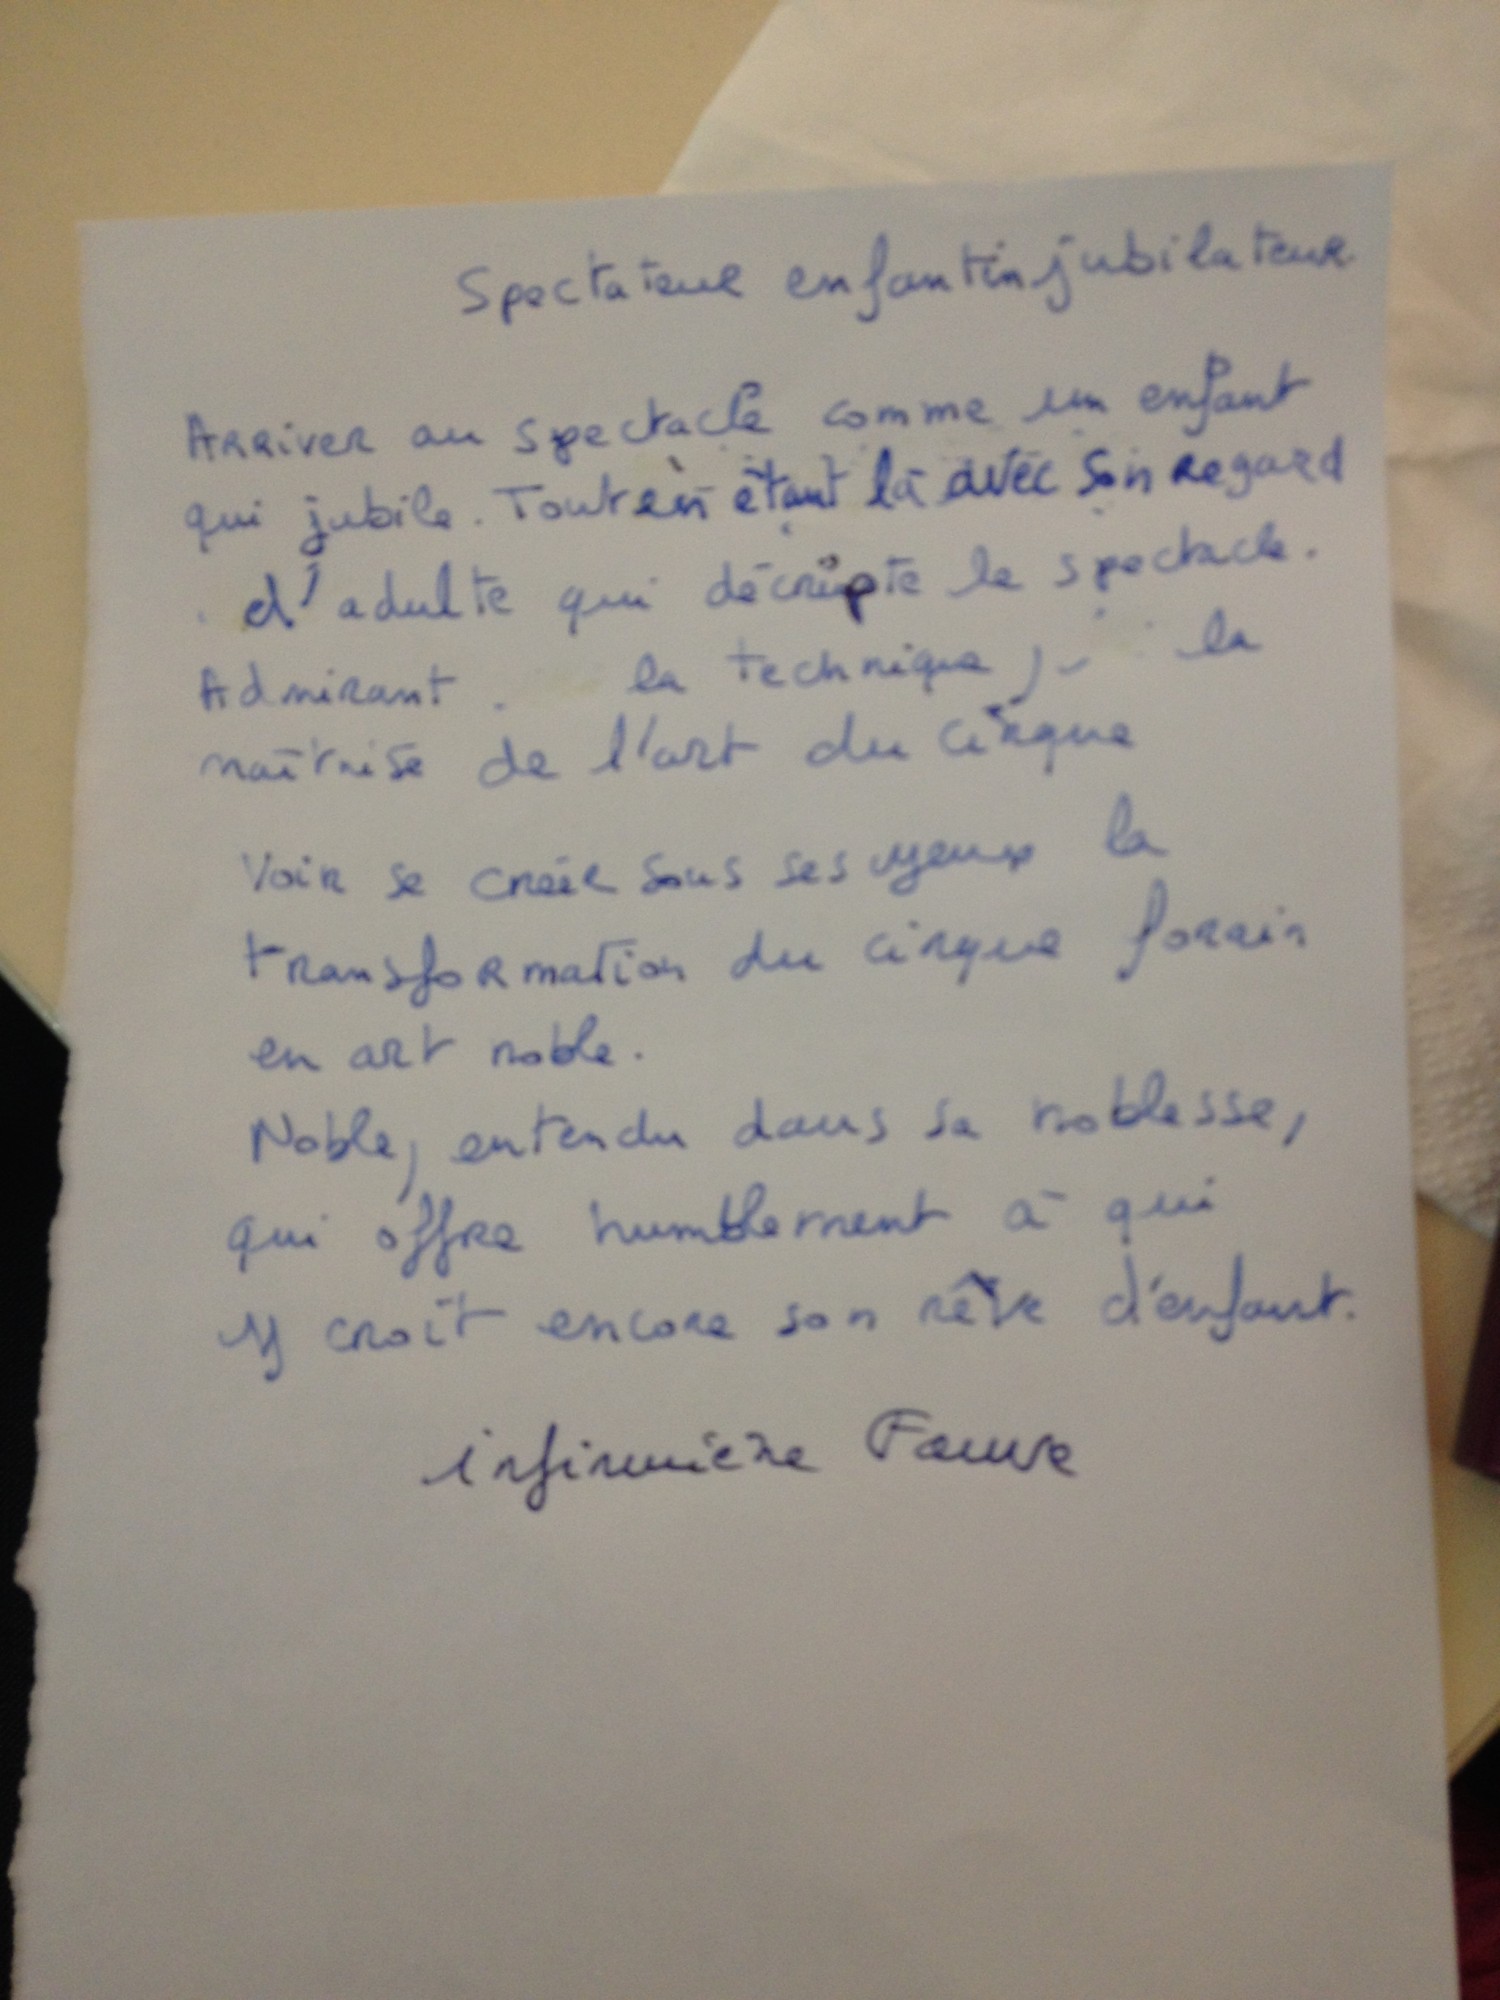 Spectateur enfantin jubilateur
Arriver au spectacle comme un enfant
qui jubile. Tout en étant là avec son regard
d'adulte qui décripte le spectacle.
Admirant la technique, la
maîtrise de l'art du cirque
Voir se créer sous ses yeux la
transformation du cirque forain
en art noble.
Noble, entendu dans sa noblesse,
qui offre humblement à qui
y croît encore son rêve d'enfant.
infirmière Fauve